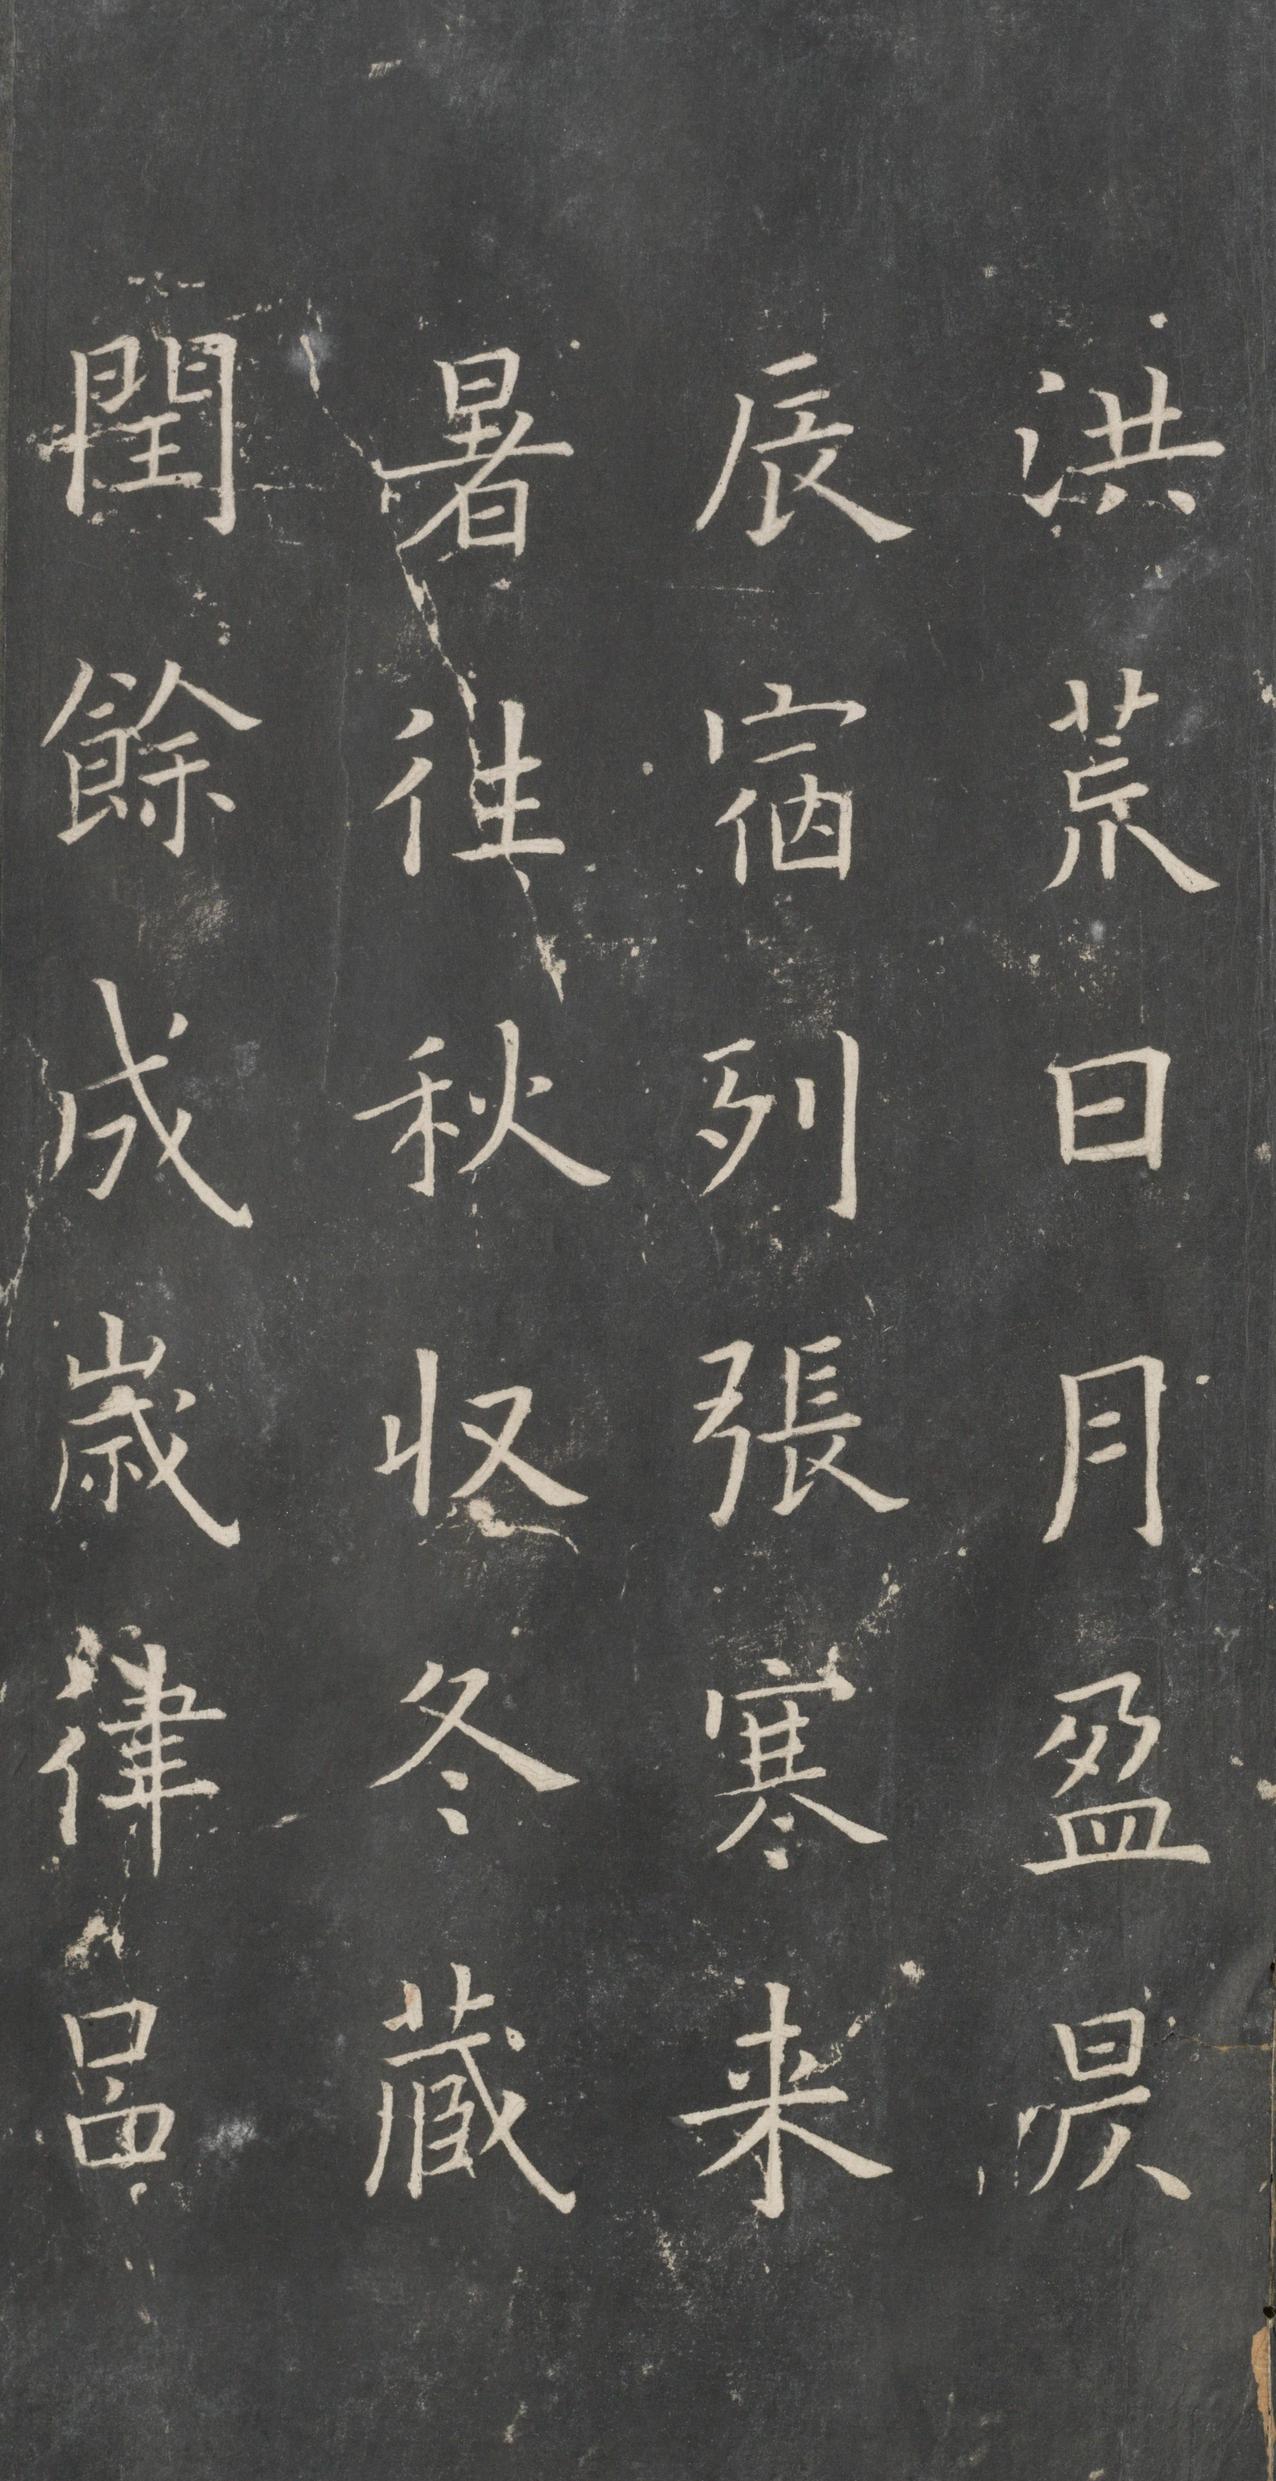 洪荒日月盈昃
辰宿列張寒来
暑往秋収冬蔵
閏餘成歲律吕